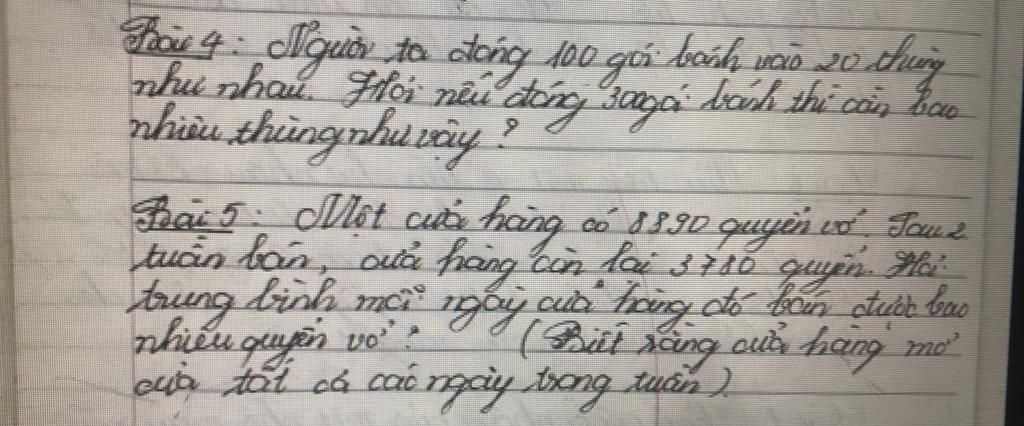 Bài 4: Người ta đóng 100 gói bánh vào 20 thùng
như nhau. Hỏi nếu đóng 300 gói bánh thì cần bao
nhiêu thùng như vậy?
Bài 5: Một cửa hàng có 8890 quyển vở. Sau 2
tuần bán, cửa hàng còn lại 3780 quyển. Hỏi
trung bình mỗi ngày cửa hàng đó bán được bao
nhiêu quyển vở? (Biết rằng cửa hàng mở
cửa tất cả các ngày trong tuần)